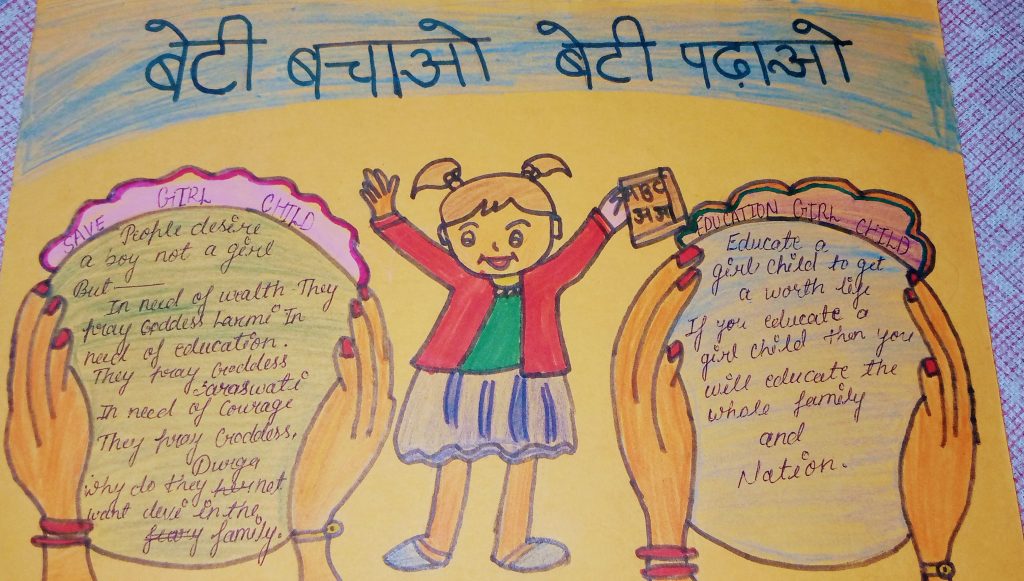 बेटी बचाओ बेटी पढ़ाओ
SAVE GIRL CHILD
People desire
a boy not a girl
But
In need of wealth They
pray Goddess Laxmi In
need of education.
They pray Goddess
Saraswati
In need of Courage
They pray Goddess,
Durga
why do they not
want devi in the
family.
ABC
अआ
EDUCATION GIRL CHILD
Educate a
girl child to get
a worth life
If you educate a
girl child then you
will educate the
whole family
and
Nation.